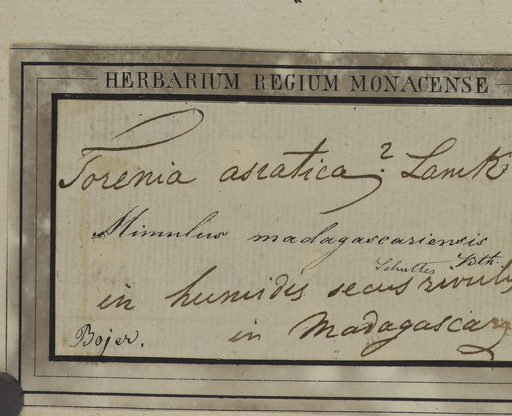 HERBARIUM REGIUM MONACENSE
Torenia asiatica? Lamk
Mimulus madagascariensis
Bth.
Schultes
in humidis secus rivulis
Bojer. in Madagascar